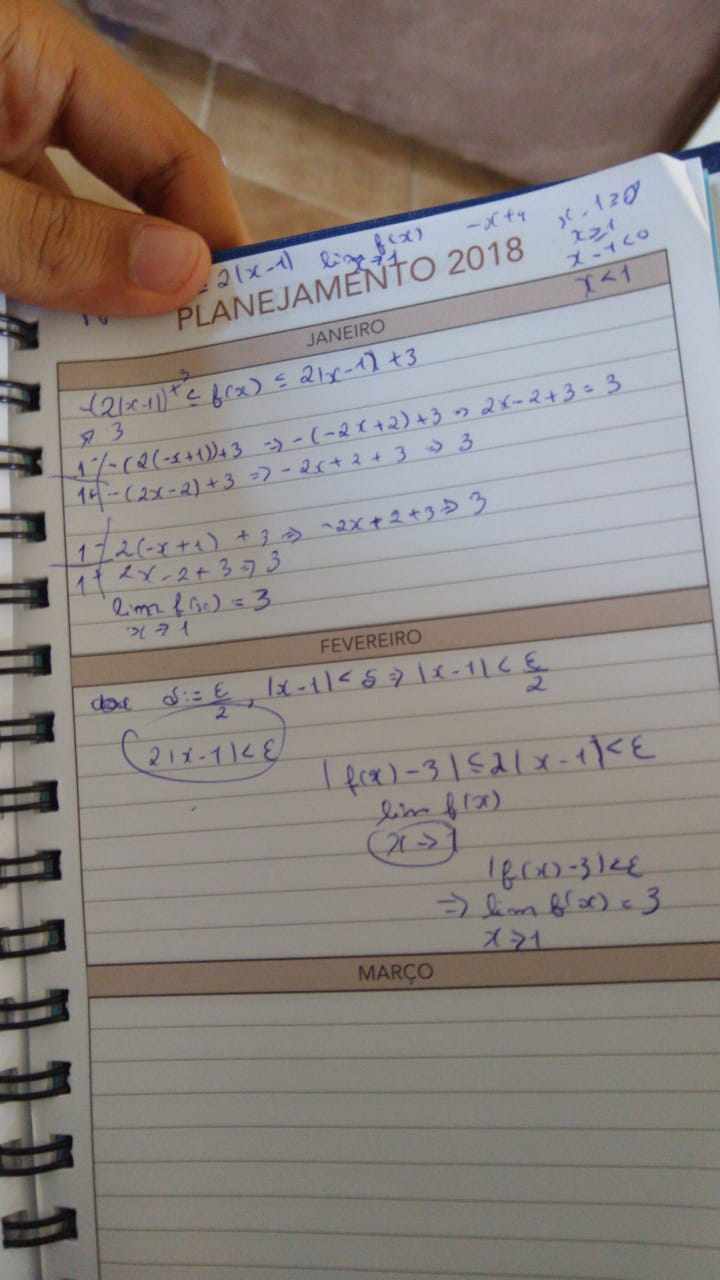 ≤ 2|x-1| lim f(x) -x+4 x-1≥0
x→1 x≥1
x-1<0
x<1
PLANEJAMENTO 2018
JANEIRO
-(2|x-1|)+3 ≤ f(x) ≤ 2|x-1|+3
⇒ 3
1- -(2(-x+1))+3 ⇒ -(-2x+2)+3 ⇒ 2x-2+3=3
1+ -(2x-2)+3 ⇒ -2x+2+3 ⇒ 3
1- 2(-x+1)+3 ⇒ -2x+2+3 ⇒ 3
1+ 2x-2+3 ⇒ 3
lim f(x) = 3
x→1
FEVEREIRO
δ:= ε/2, |x-1|<δ ⇒ |x-1|< ε/2
2|x-1|<ε
|f(x)-3|≤2|x-1|<ε
lim f(x)
x→1
|f(x)-3|<ε
⇒ lim f(x) = 3
x→1
MARÇO